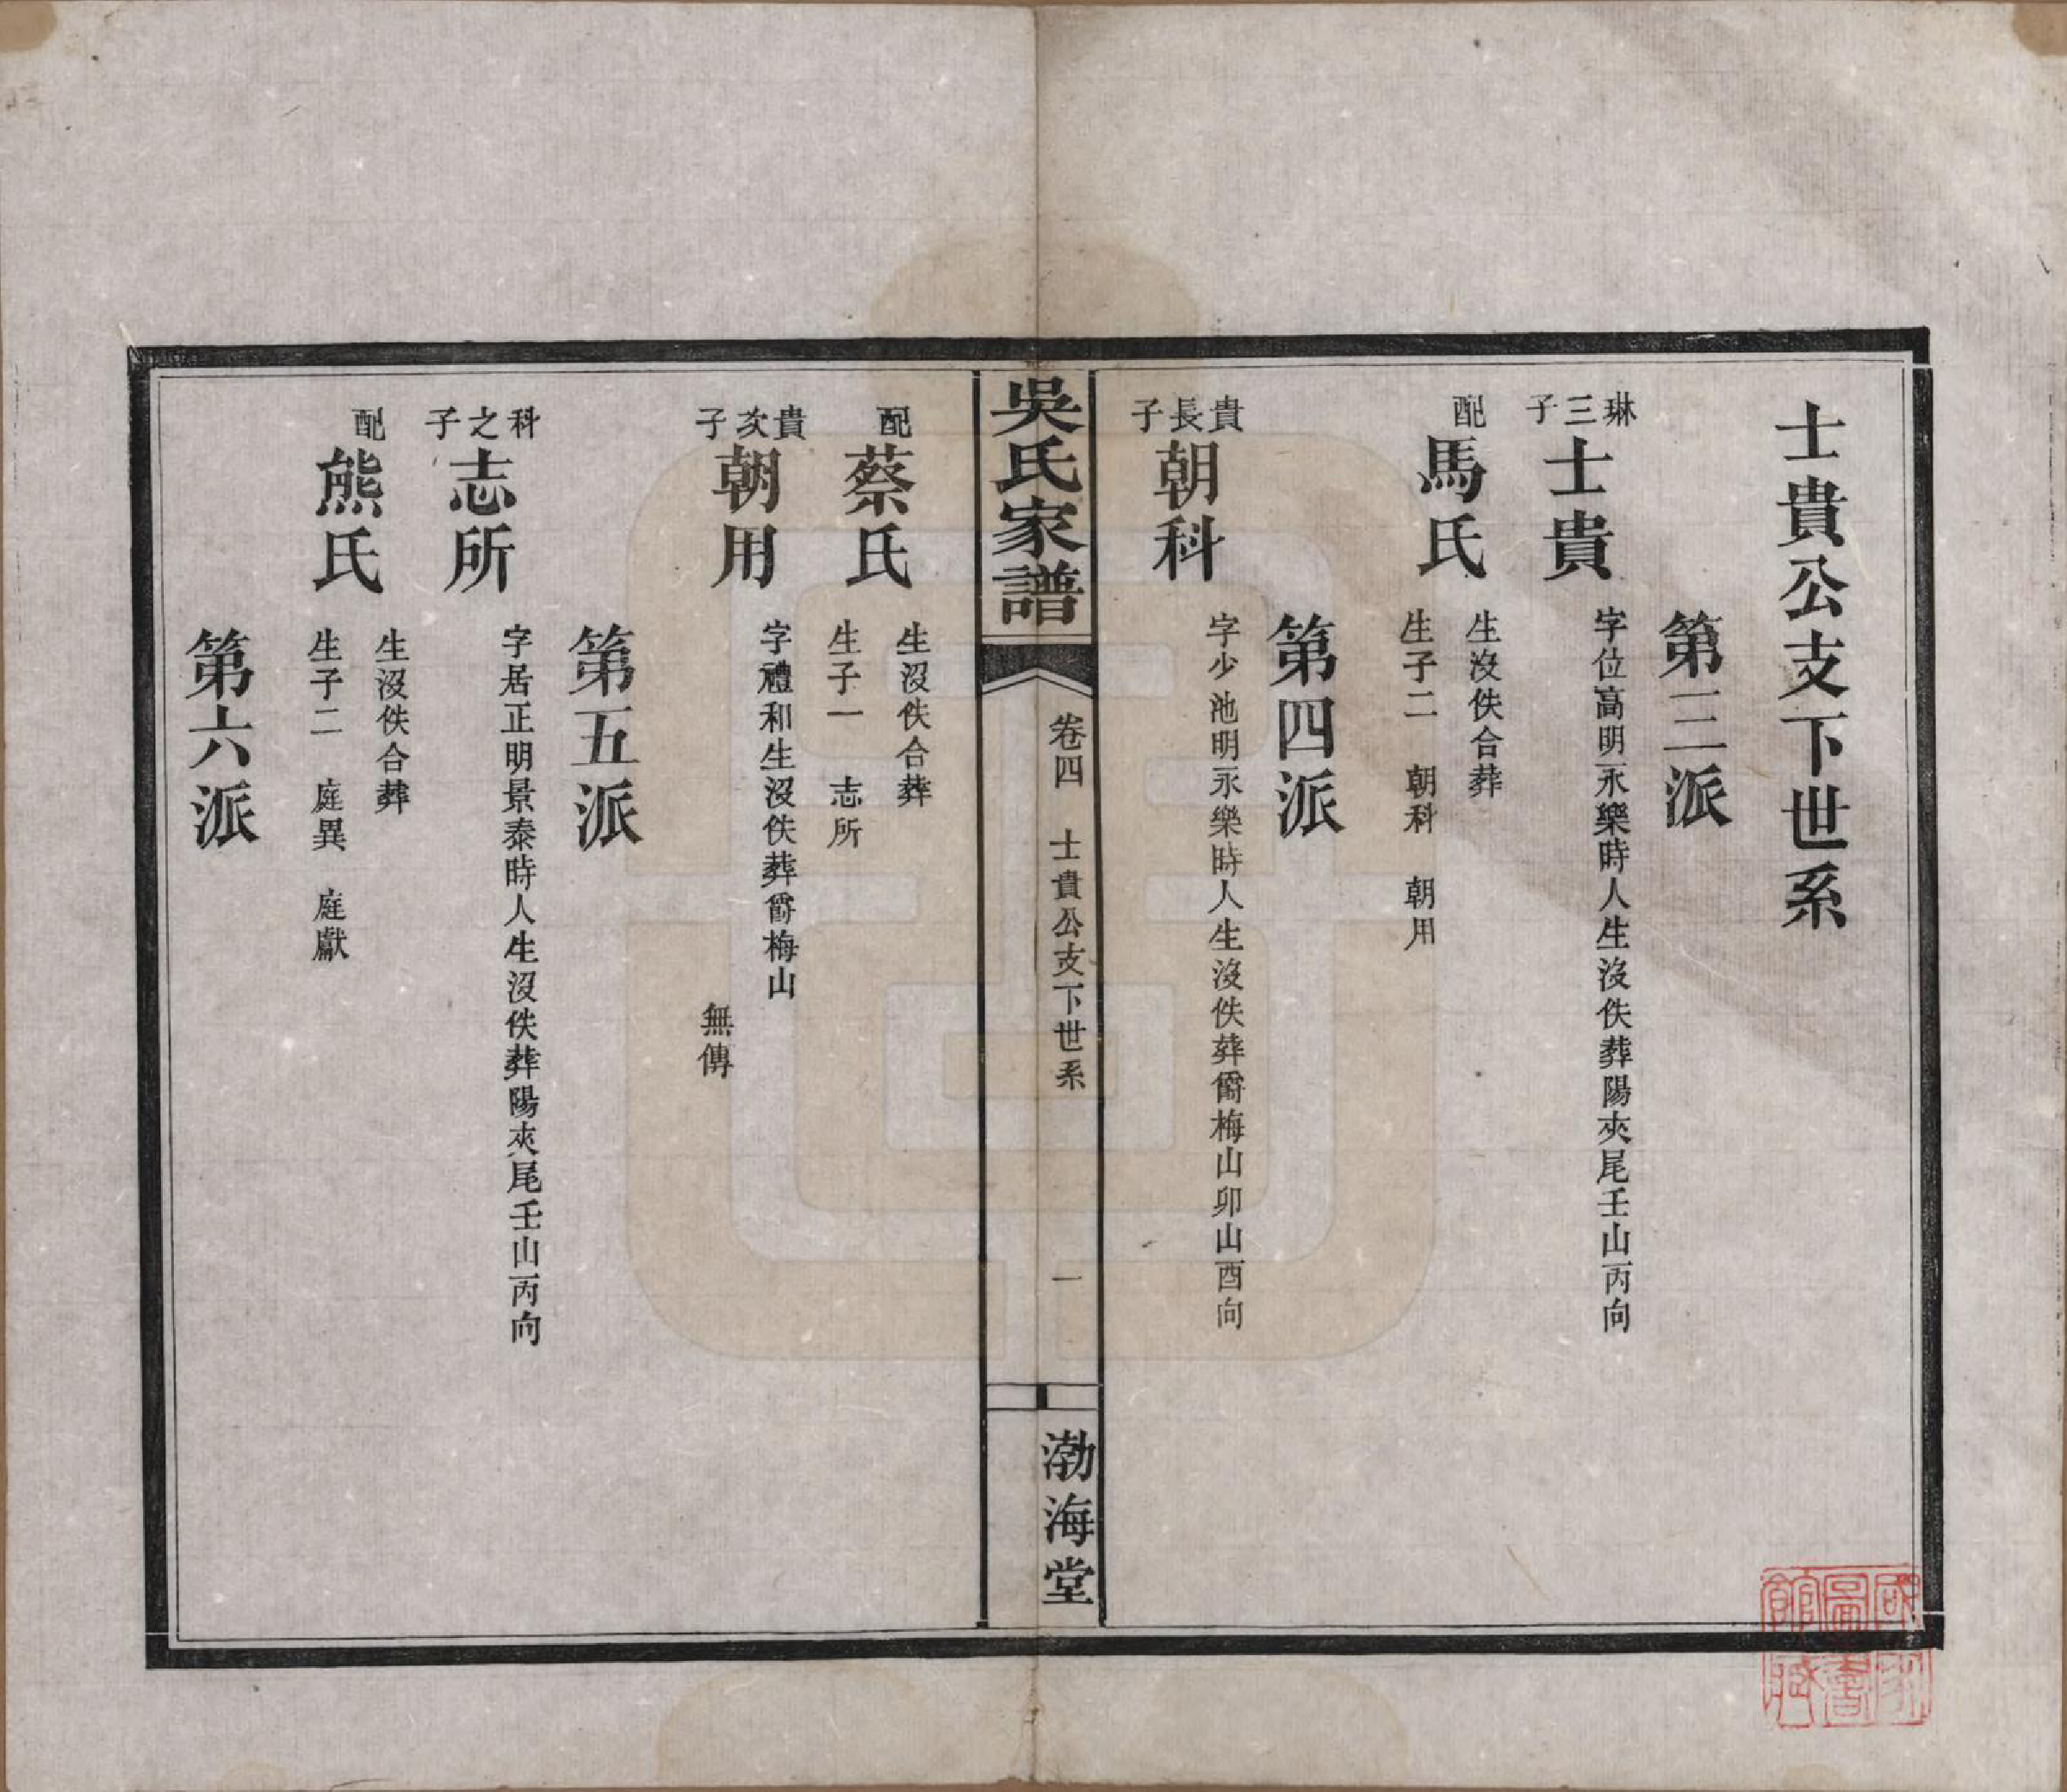 士貴公支下世系
第三派
琳三子
士貴
字位高明永樂時人生沒佚葬陽夾尾壬山丙向
配
馬氏
生沒佚合葬
生子二　朝科　朝用
第四派
貴長子
朝科
字少池明永樂時人生沒佚葬爵梅山卯山酉向
吳氏家譜
卷四　士貴公支下世系
一
渤海堂
配
蔡氏
生沒佚合葬
生子一　志所
貴次子
朝用
字禮和生沒佚葬爵梅山
無傳
第五派
科之子
志所
字居正明景泰時人生沒佚葬陽夾尾壬山丙向
配
熊氏
生沒佚合葬
生子二　庭異　庭獻
第六派
國家
圖書
館藏